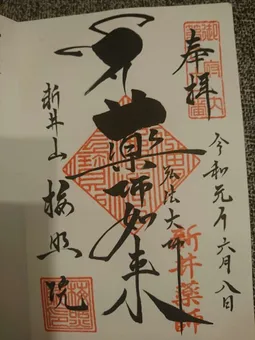 奉拝
令和元年六月八日
弘法大師
新井薬師
薬師如来
新井山
梅照院